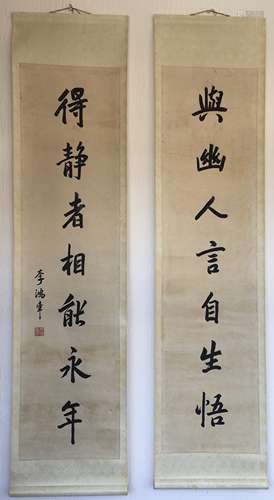 與幽人言自生悟
得静者相能永年
李鴻章